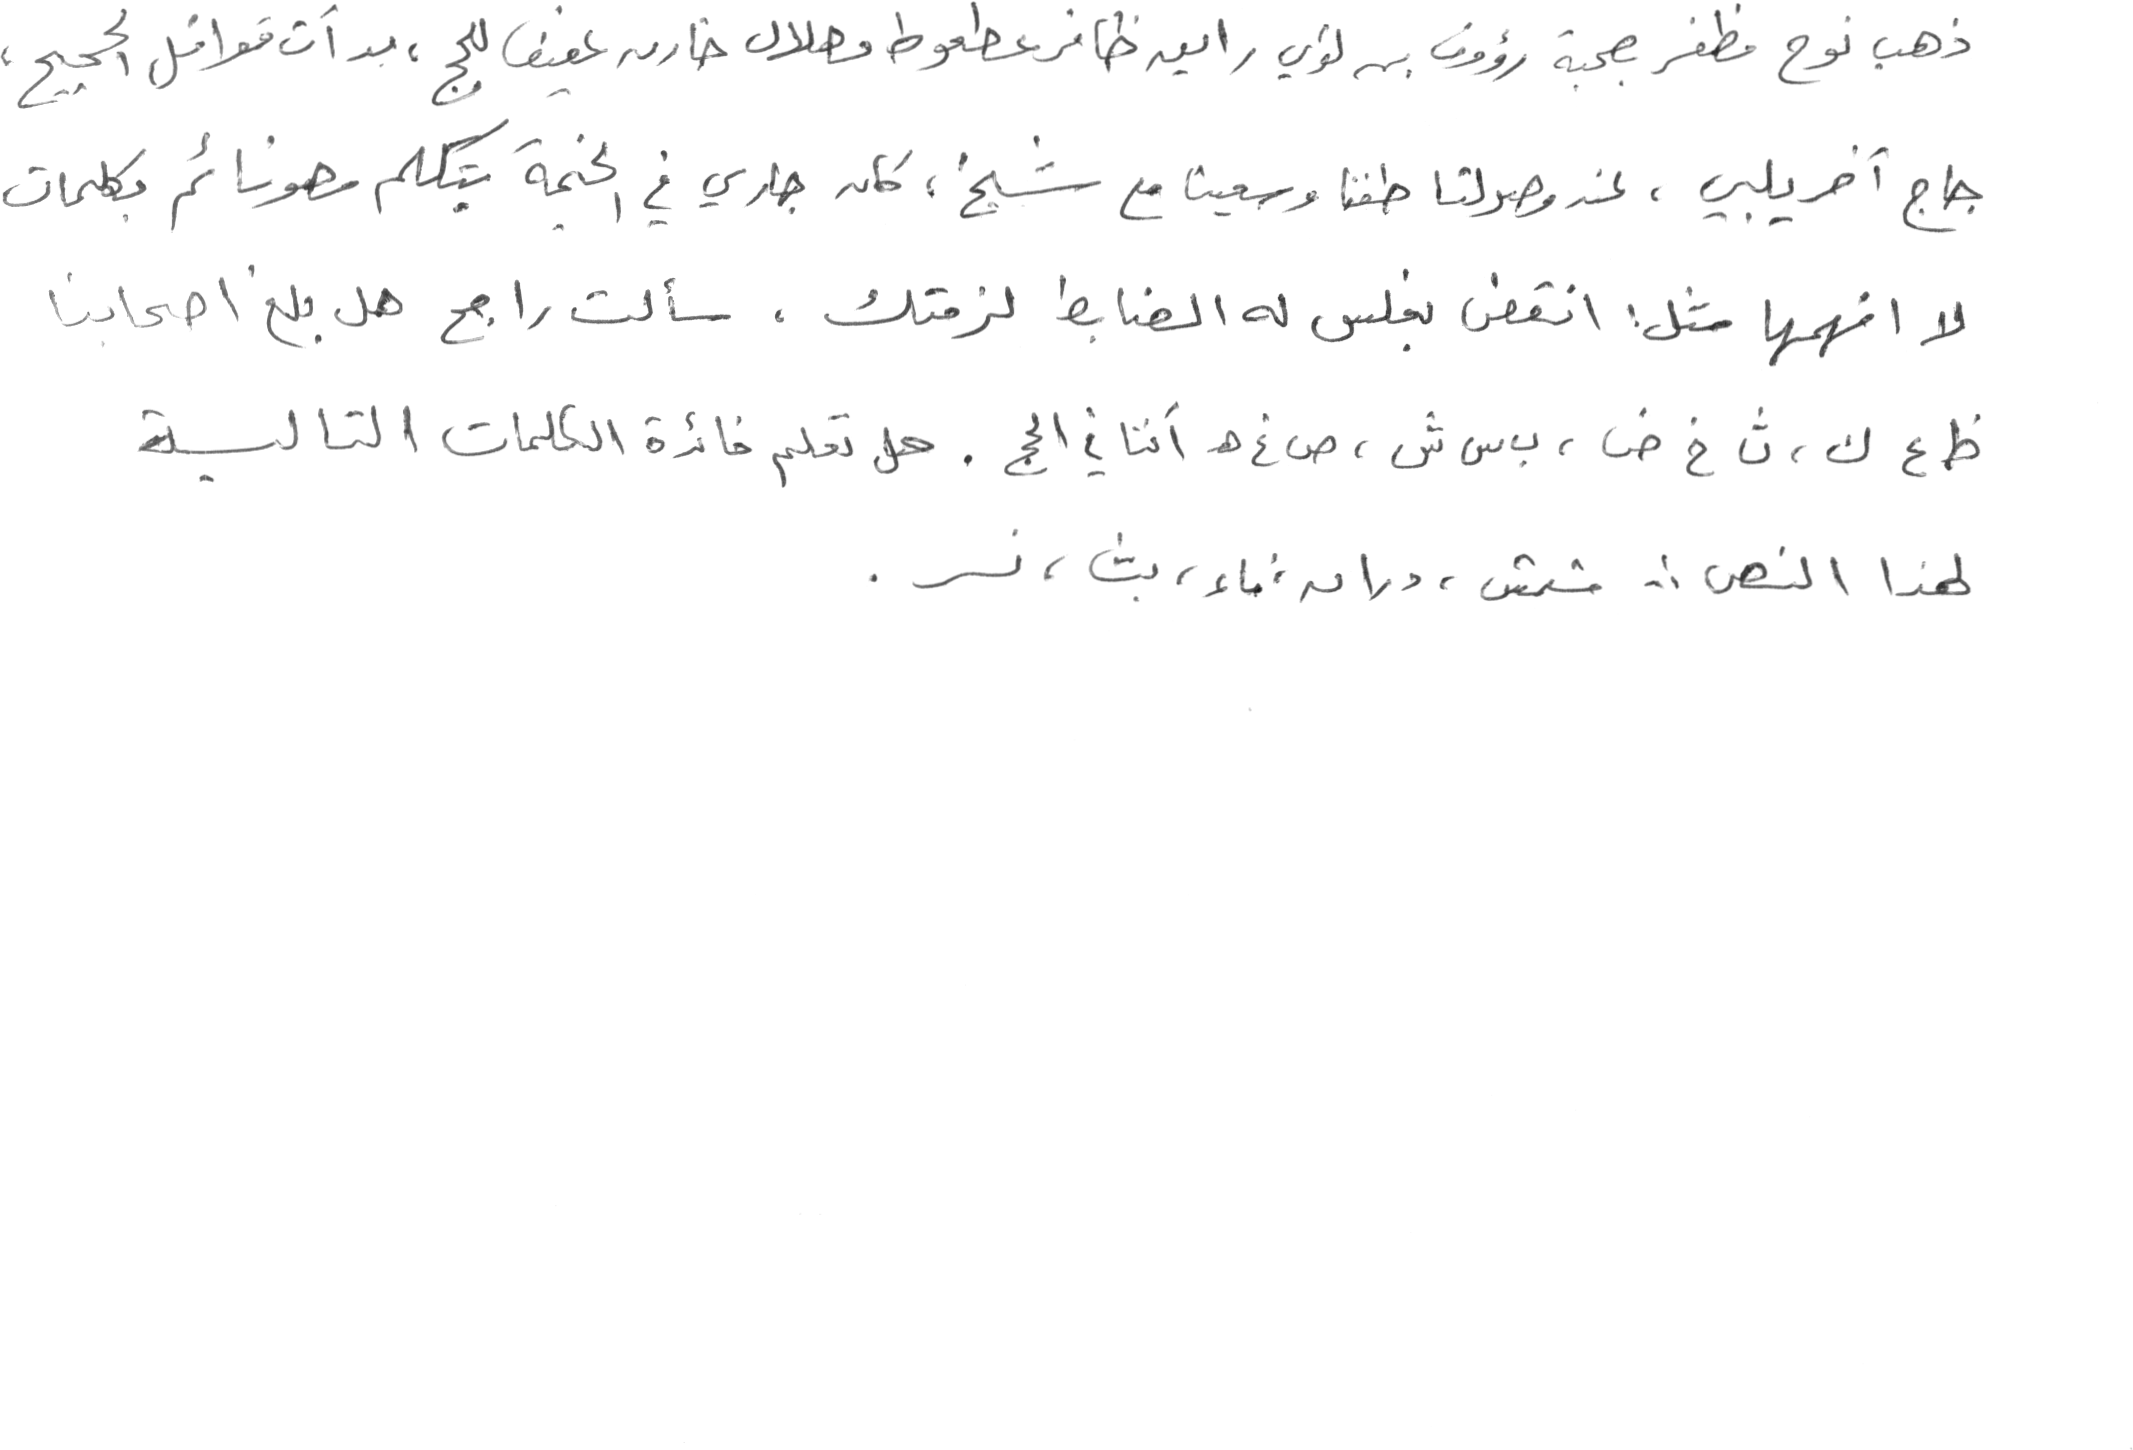 ذهب نوح مظفر بصحبة رؤوف بن لؤي رابعه ظافر عطعوط وهلال خازن عفيفا للحج ، بدأت قوافل الحجيج ،
حاج آخر يلبي ، عند وصولنا طفنا وسعينا مع شيخ ، كان جاري في الخيمة يتكلم وهو نائم بكلمات
لا افهمها مثل : انقض بغلس له الضابط لزمتك ، سألت رابح هل بلغ اصحابنا
ظ ع ك ، ث خ ض ، ب س ش ، ص غ ه أننا في الحج . هل تعلم فائدة الكلمات التالية
لهذا النص :: مشمش ، دران ، ماء ، بث ، نسر .